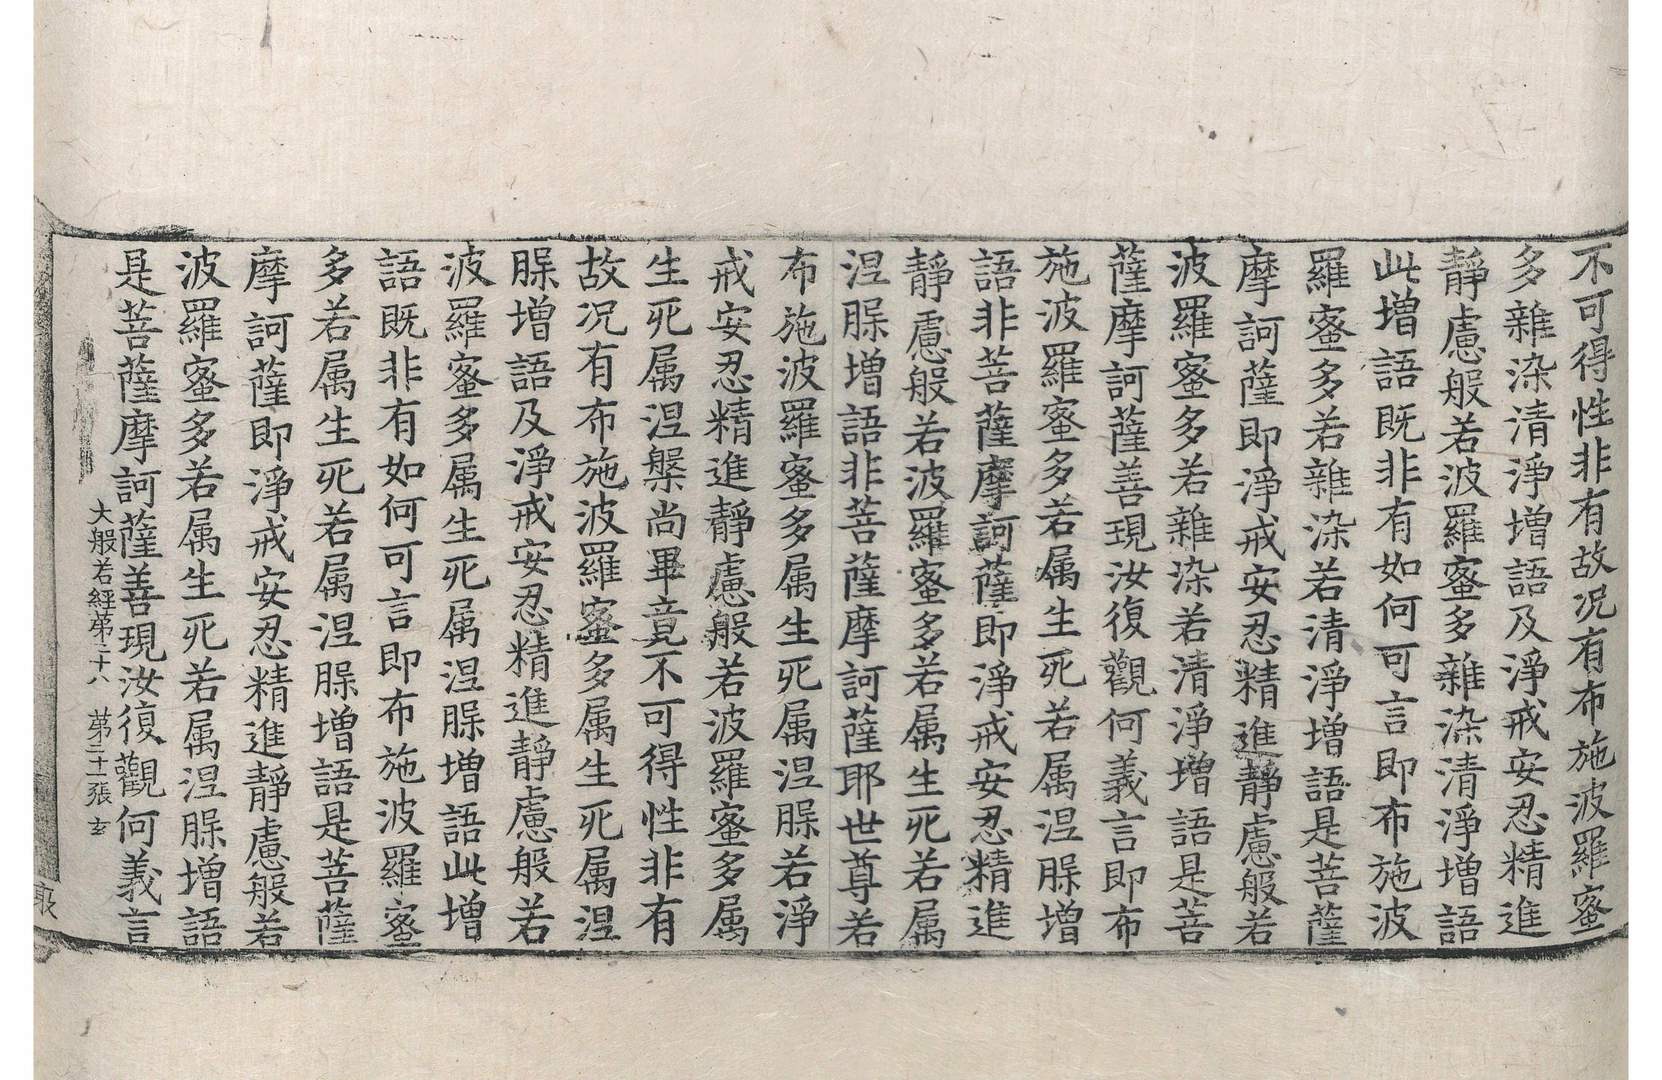 不可得性非有故况有布施波羅蜜
多雜染清淨增語及淨戒安忍精進
靜慮般若波羅蜜多雜染清淨增語
此增語既非有如何可言即布施波
羅蜜多若雜染若清淨增語是菩薩
摩訶薩即淨戒安忍精進靜慮般若
波羅蜜多若雜染若清淨增語是菩
薩摩訶薩善現汝復觀何義言即布
施波羅蜜多若属生死若属涅腺增
語非菩薩摩訶薩即淨戒安忍精進
靜慮般若波羅蜜多若属生死若属
涅腺增語非菩薩摩訶薩耶世尊若
布施波羅蜜多属生死属涅腺若淨
戒安忍精進靜慮般若波羅蜜多属
生死属涅槃尚畢竟不可得性非有
故况有布施波羅蜜多属生死属涅
腺增語及淨戒安忍精進靜慮般若
波羅蜜多属生死属涅腺增語此增
語既非有如何可言即布施波羅蜜
多若属生死若属涅腺增語是菩薩
摩訶薩即淨戒安忍精進靜慮般若
波羅蜜多若属生死若属涅腺增語
是菩薩摩訶薩善現汝復觀何義言
大般若經苐二十八 苐二十一張 玄